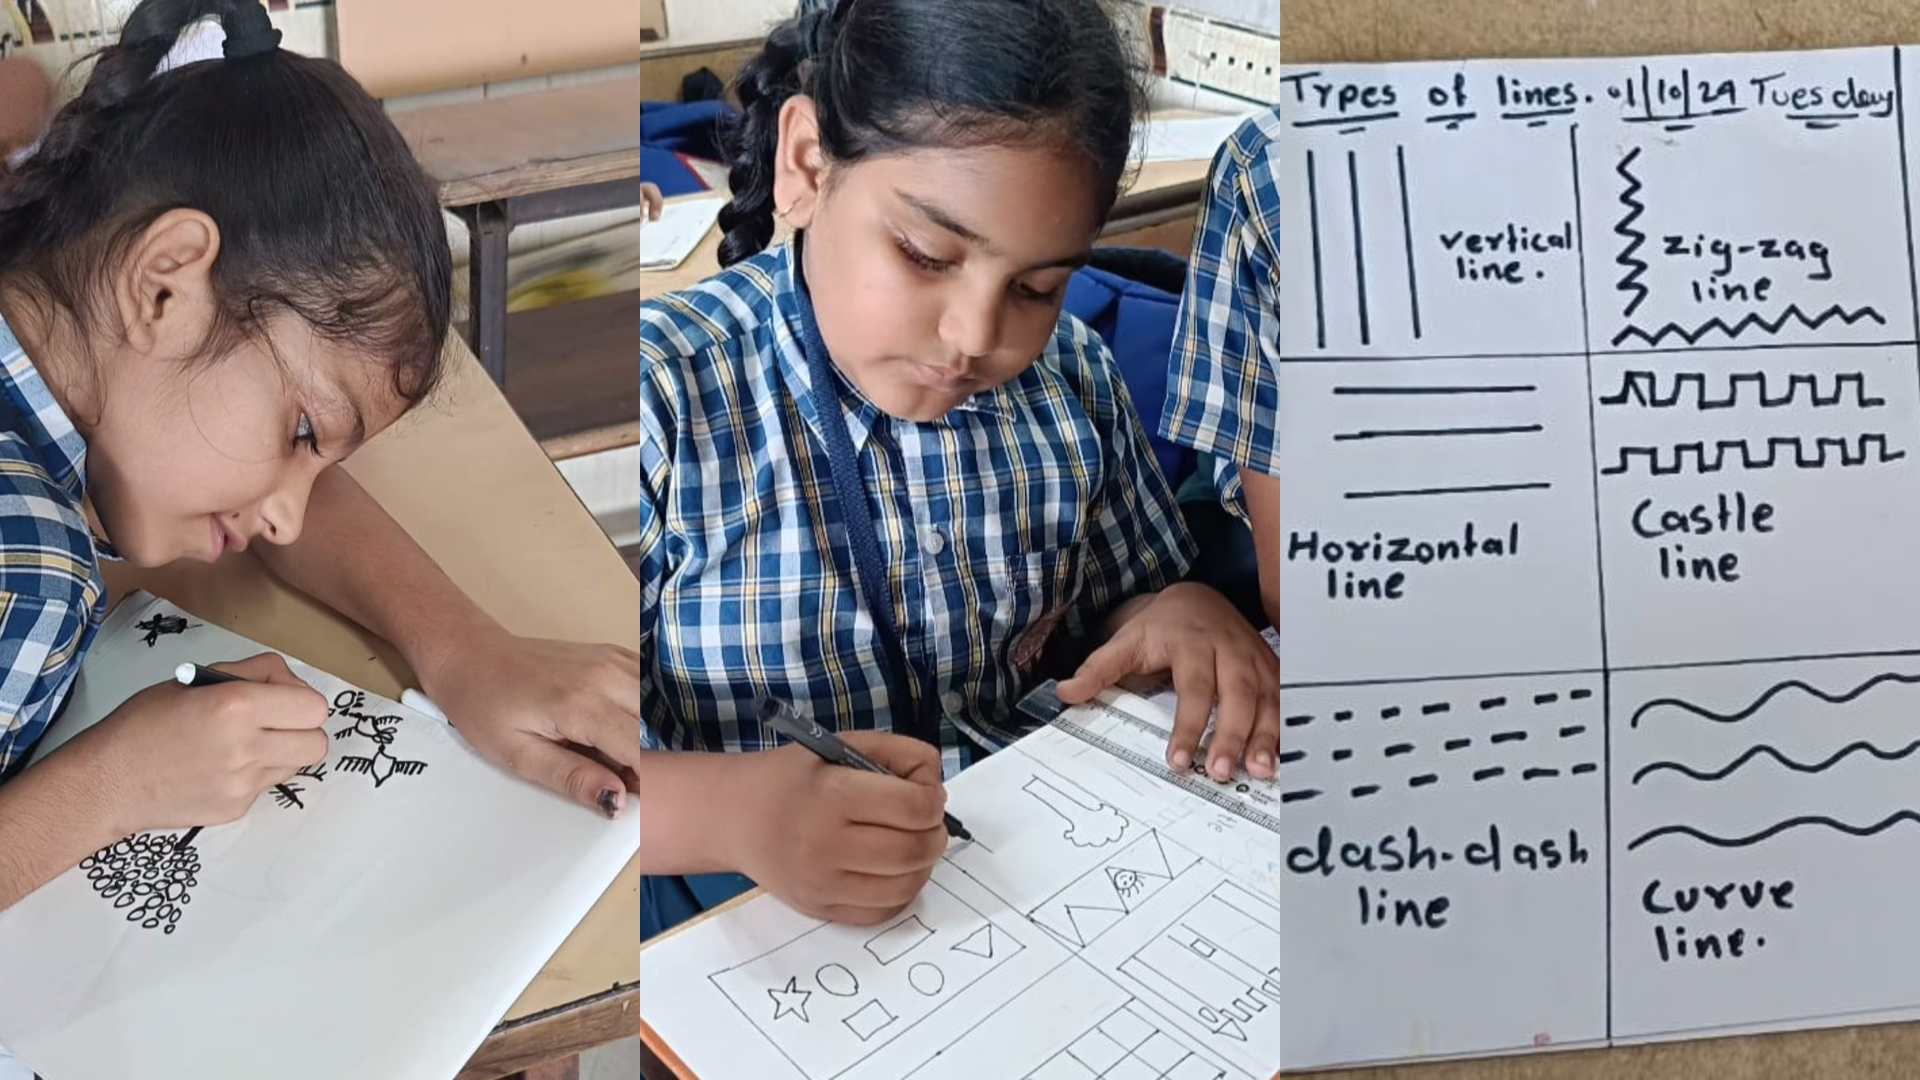 Types of lines. 01/10/24 Tuesday
vertical
line.
zig-zag
line
Horizontal
line
Castle
line
dash-dash
line
Curve
line.